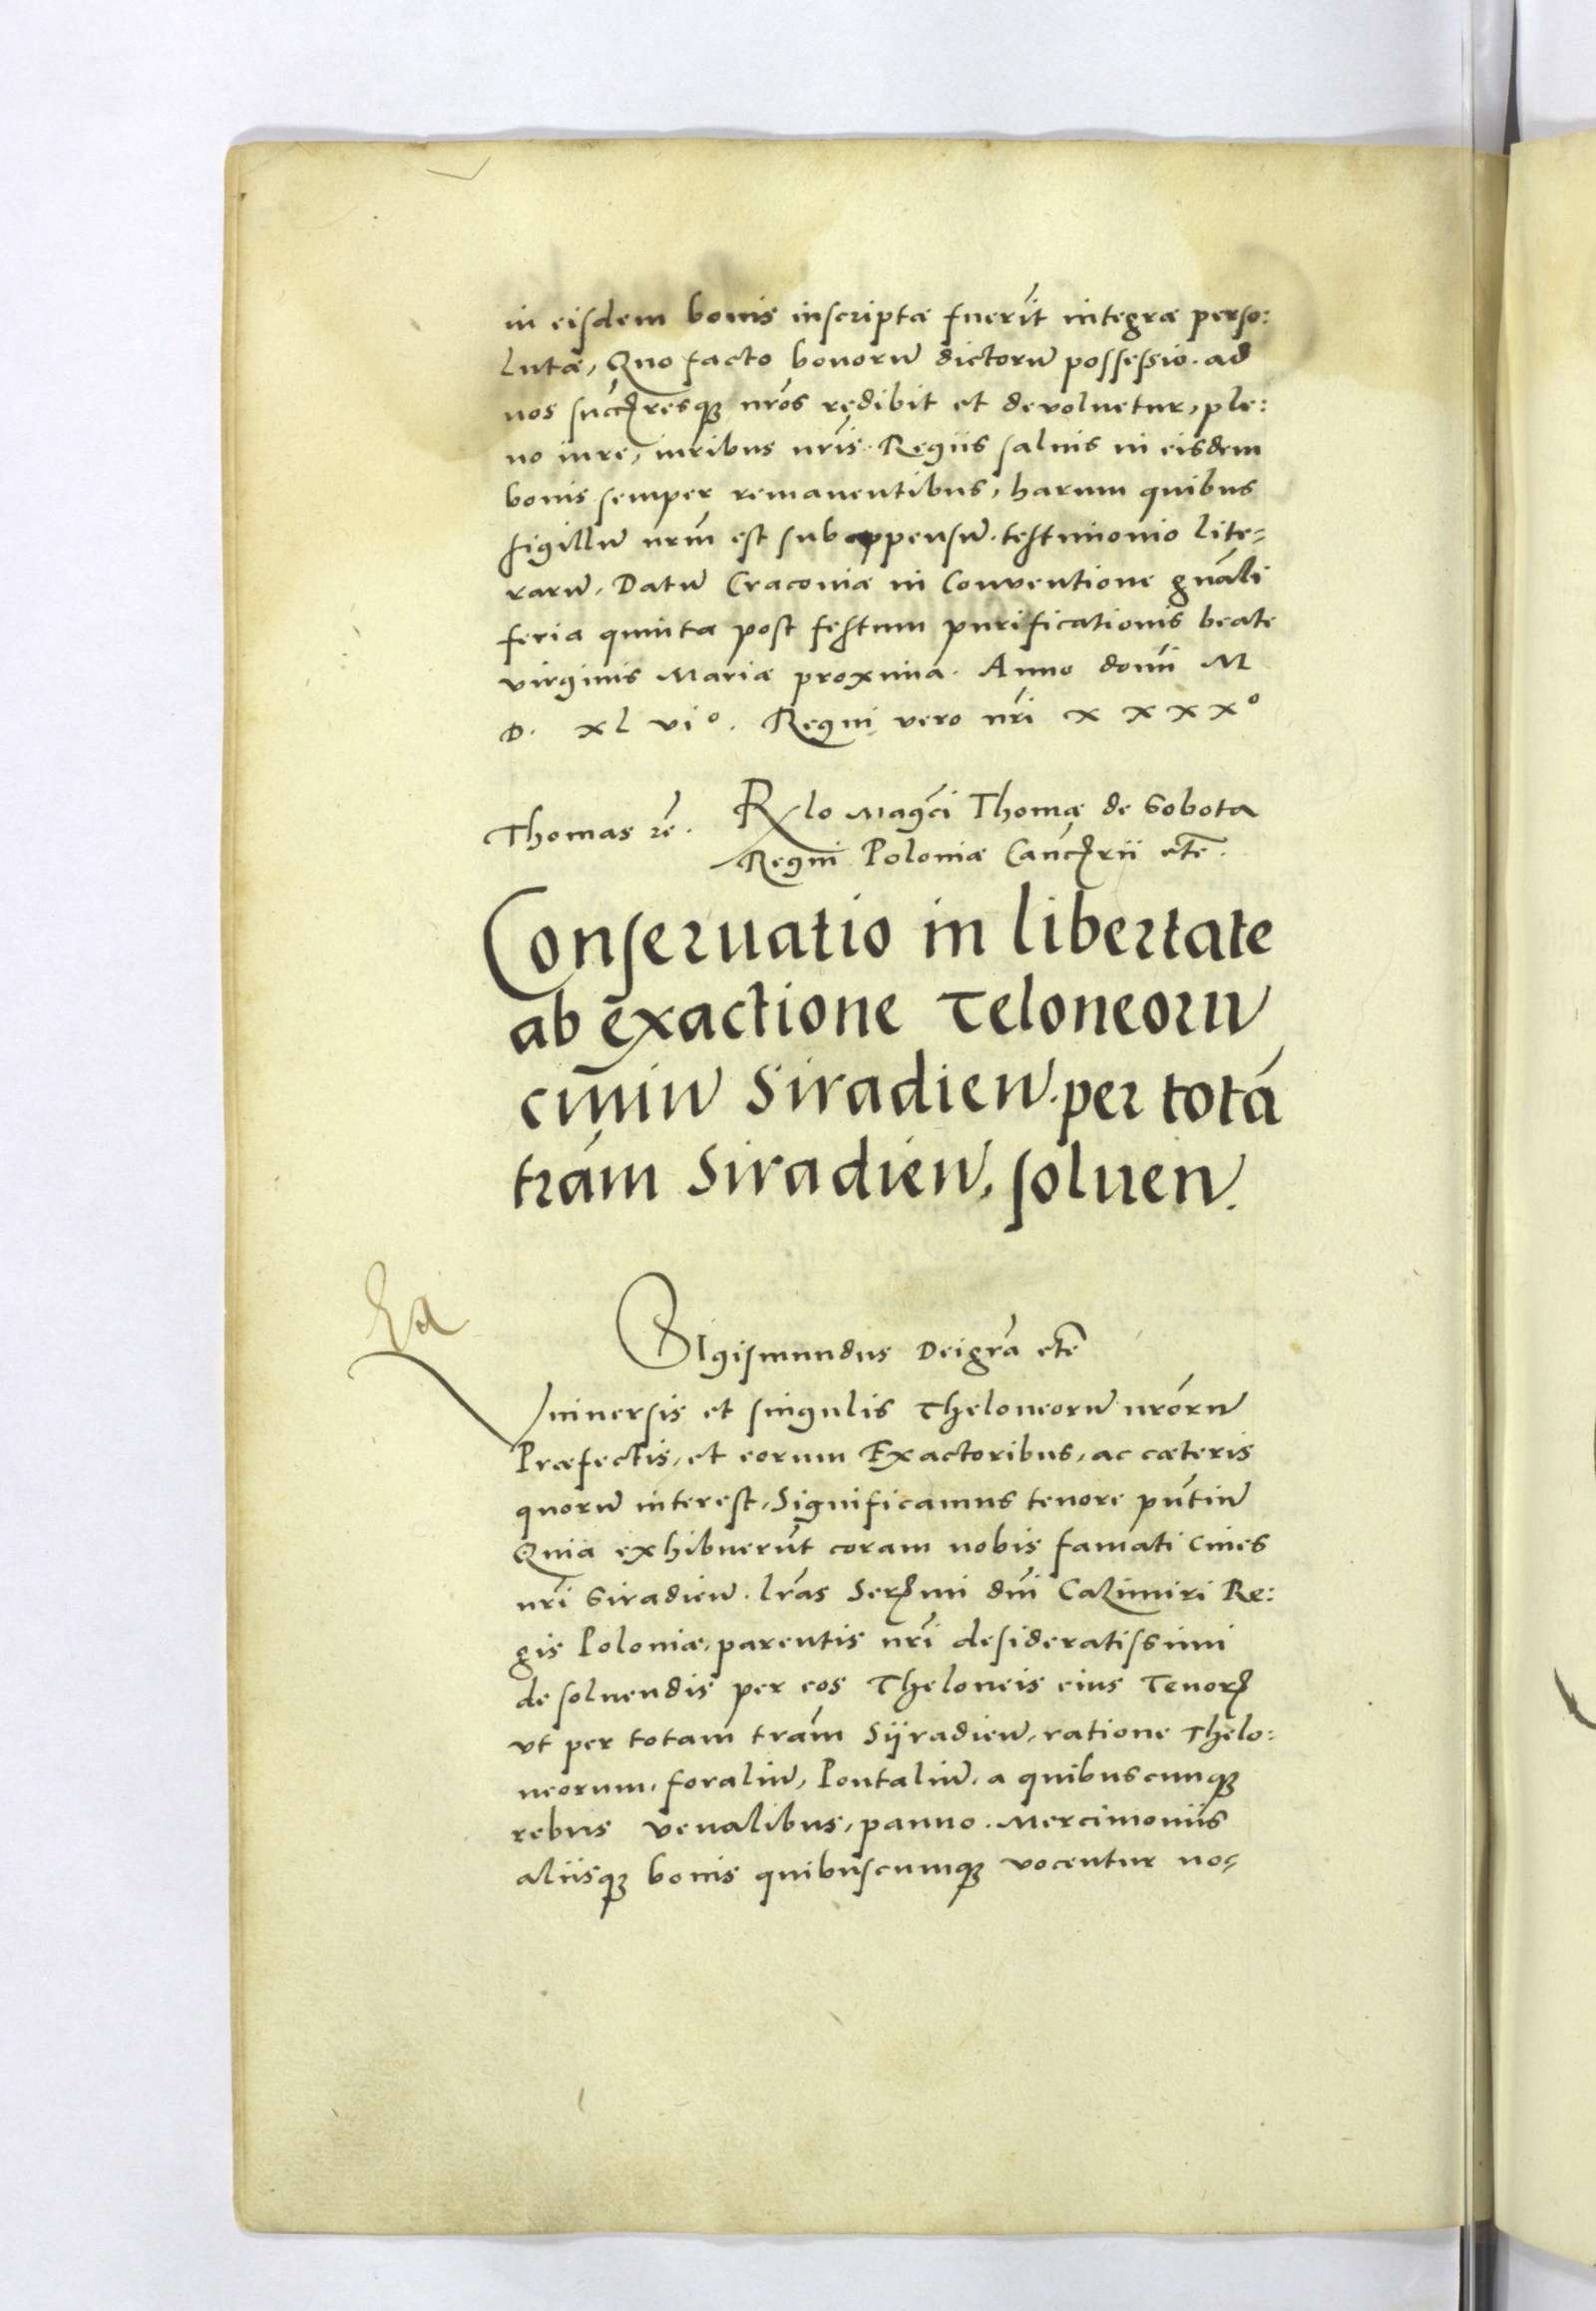 in eisdem bonis inscriptæ fuerīt integræ perso:
lutæ, Quo facto bonorū dictorū possessio. ad
nos succꝛesqꝫ nr̃os redibit et devoluetur, ple:
no iure, iuribus nr̃is Regiis saluis in eisdem
bonis semper remanentibus, harum quibus
sigillū nr̃m est subappensū. testimonio lite-
rarū. Datū Cracouiæ in Conventione gn̄ali
feria quinta post festum purificationis beate
virginis Mariæ proxima. Anno domī M
D. xl viº. Regni vero nr̃i x x x xº
Thomas rē. Rꝉo Magc̄i Thomæ de Sobota
Regni Poloniæ Canc̄rii etc̄.
Conseruatio in libertate
ab exactione Teloneorū
ciuiū Siradieñ. per totā
tr̄am Siradieñ, solueñ.
Ra
Sigismundus Dei gr̃a etc̄
Vniuersis et singulis Theloneorū nr̃orū
Præfectis, et eorum Exactoribus, ac cæteris
quorū interest, Significamus tenore pn̄tiū
Quia exhibuerūt coram nobis famati Ciues
nr̃i Siradieñ. lr̃as Serꝛ̄mi dn̄i Cazimiri Re:
gis Poloniæ, parentis nr̃i desideratissimi
de soluendis per eos Theloneis eius Tenorꝭ
vt per totam tr̄am Sijradieñ, ratione Thelo:
neorum, foraliū, Pontaliū, a quibuscunqꝫ
rebus venalibus, panno. Mercimoniis
aliisqꝫ bonis quibuscumqꝫ vocentur no-